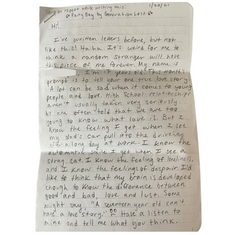 1/20/21
Hi!
I've written letters before, but not
like this! Haha. It's weird for me to
think a random stranger will have
this piece of me forever. My name is
I am 17 years old. This month's
prompt is to tell your one true love story.
A lot can be said when it comes to young
people and love. High school relationships
aren't usually taken very seriously.
We are often told that we are too
young to know what love is. But I
know the feeling I get when I see
my dad's car pull into the driveway
after a long day at work. I know the
I get when I see a
stray cat. I know the feeling of
and I know the feelings of despair. I'd
like to think that my brain is developed
enough to know the difference between
good and bad, love and lust. Some
might say, "A seventeen year old can't
have a love story." Have a listen to
mine and tell me what you think.